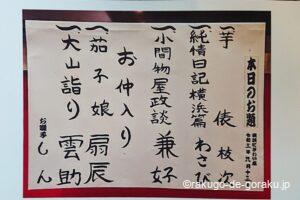 本日のお題
一芋　俵　枝次
一純情日記横浜篇　わさび
一小間物屋政談　兼好
お仲入り
一茄子娘　扇辰
一大山詣り　雲助
お囃子　しん
©rakugo-de-goraku.jp